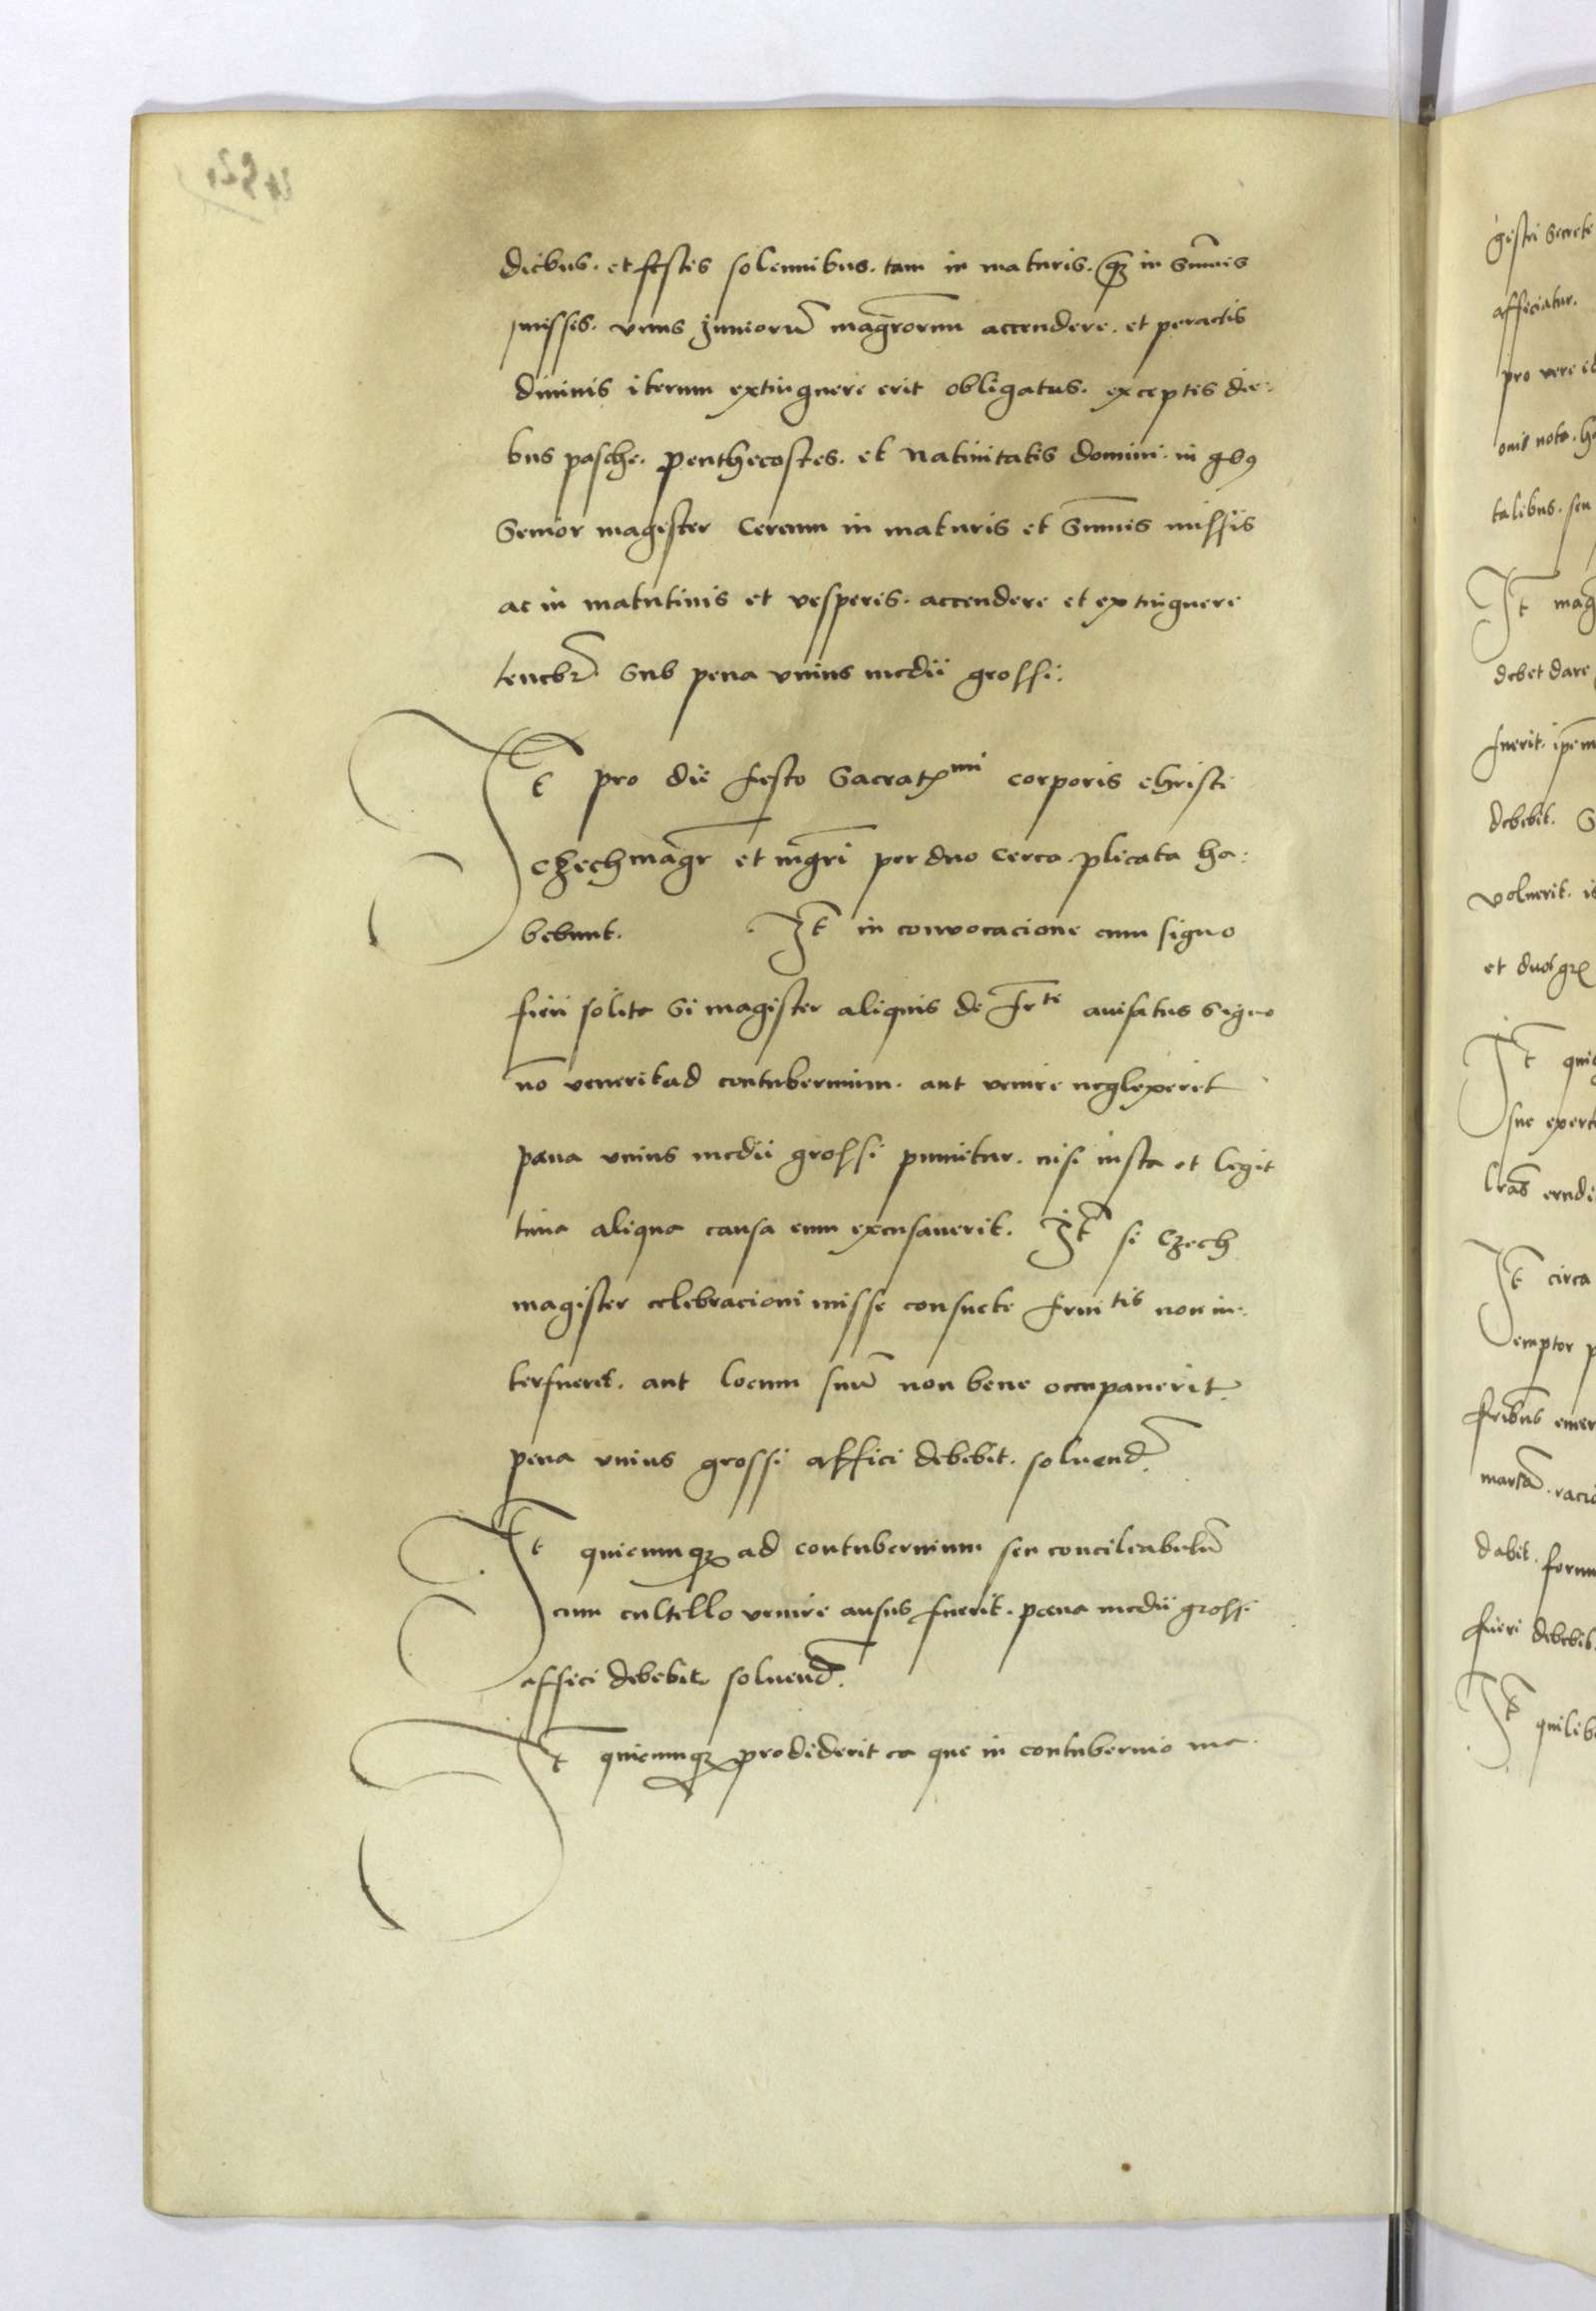 diebus. et festis solennibus. tam in maturis. qz in sum̄is
missis. vnus juniorū mag̅rorum accendere. et peractis
diuinis iterum extinguere erit obligatus. exceptis die:
bus pasche. penthecostes. et Natiuitatis domini. in qb9
Senior magister Cereum in maturis et Sum̄is missis
ac in matutinis et vesperis. accendere et extinguere
tenebr̅. Sub pena vnius medii grossi.
It̅ pro die festo Sacratᵐⁱ corporis christi
czechmagr̅ et mg̅ri per duo cerea. plicata ha:
bebunt. It̅ in conuocacione cum signo
fieri solite Si magister aliquis de fr̅ᵗᵉ auisatus signo
no̅ venerit ad contubernium. aut venire neglexerit
pena vnius medii grossi punitur. nisi iusta et legit
tima aliqua causa eum excusauerit. It̅ si Czech
magister celebracioni misse consuete fruiᵗⁱˢ non in:
terfuerit. aut locum suū non bene occupauerit.
pena vnius grossi affici debebit. soluend̅.
It̅ quicumqz ad contubernium seu concileabulū
cum cultello venire ausus fuerit. pena medii grossi
affici debebit soluend̅.
It̅ quicumqz prodiderit ea que in contubernio ma.
gistri secrete
afficiatur.
pro vere
onis nota.
talibus. seu
It̅ mag
debet dare
fuerit.
debebit. S
voluerit. is
et duos gr
It̅ qui
sue
It̅ circa
emptor p
fribus emer
dabit. forum
fieri debebit
It̅ quilib